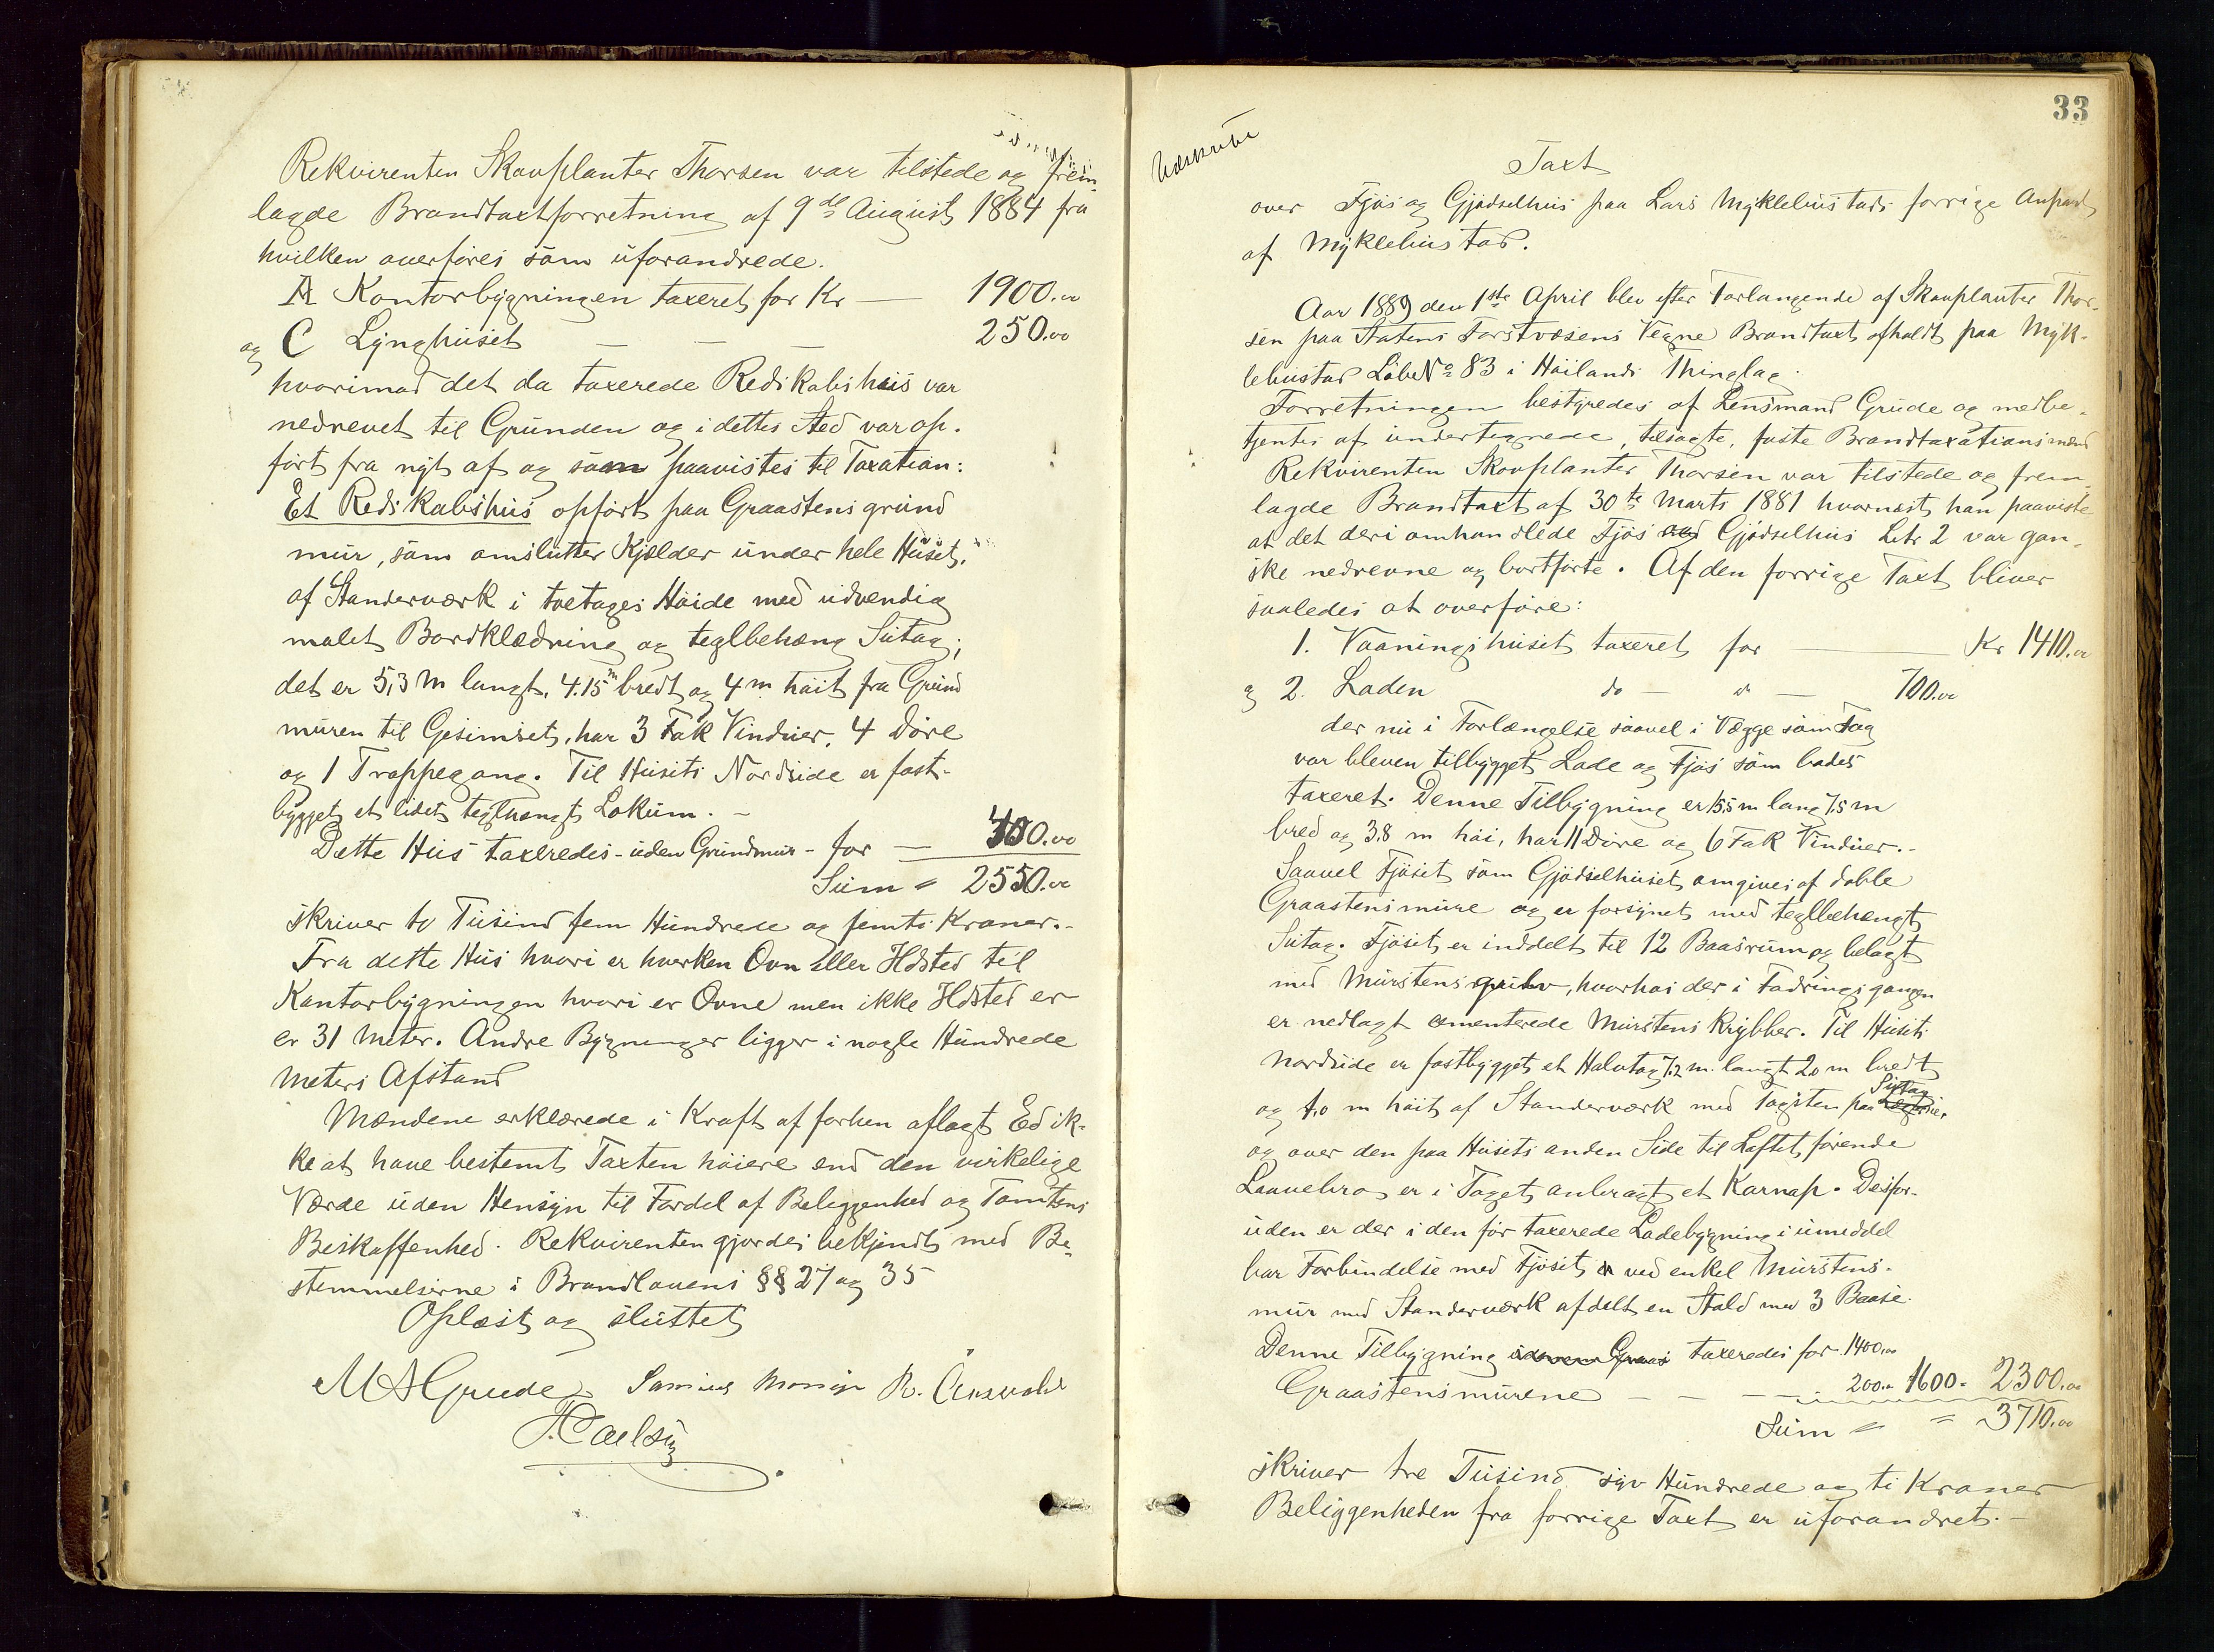 Rekvirenten Skovplanter Thorsen var tilstede og frem-
lagde Brandtaxtforretning af 9de August 1884 fra
hvilken overføres som uforandrede.
A Kontorbygningen taxeret for Kr — 1900.00
og C Lynghuset — — — 250.00
hvorimod det da taxerede Redskabshuis var
nedrevet til Grunden og i dettes Sted var op-
ført fra nyt af og som paavistes til Taxation:
Et Redskabshus opført paa Graastensgrund
mur, som omslutter Kjælder under hele Huset,
af Standerværk i toetages Høide med udvendig
malet Bordklædning og teglbehæng Sutag;
det er 5,3 m langt, 4.15 m bredt og 4 m høit fra Grund
muren til Gesimset, har 3 Fak Vinduer, 4 Døre
og 1 Trappegang. Til Husets Nordside er fast-
bygget et lidet teglhængt Lokum. -
Dette Hus taxeredes - uden Grundmur - for — 400.00
Sum = 2550.00
skriver to Tusind fem Hundrede og femti Kroner.-
Fra dette Hus hvori er hverken Ovn eller Ildsted til
Kontorbygningen hvori er Ovne men ikke Ildsted er
er 31 Meter. Andre Bygninger ligger i nogle Hundrede
Meters Afstand
Mændene erklærede i Kraft af forhen aflagt Ed ik-
ke at have bestemt Taxten høiere end den virkelige
Værde uden Hensyn til Fordel af Beliggenhed og Tomtens
Beskaffenhed. Rekvirenten gjordes bekjendt med Be-
stemmelserne i Brandlovens §§ 27 og 35
Oplæst og sluttet
M A Grude
33
Taxt
over Fjøs og Gjødselhus paa Lars Myklebustads forrige Anpart
af Myklebustad.
Aar 1889 den 1ste April blev efter Forlangende af Skovplanter Thor-
sen paa Statens Forstvæsens Vegne Brandtaxt afholdt paa Myk-
lebustad Løbe No 83 i Høilands Thinglag.
Forretningen bestyredes af Lensmand Grude og medbe-
tjentes af undertegnede, tilsagte, faste Brandtaxationsmænd
Rekvirenten Skovplanter Thorsen var tilstede og frem-
lagde Brandtaxt af 30te Marts 1881 hvornæst han paaviste
at det deri omhandlede Fjøs og Gjødselhus Litr 2 var gan-
ske nedrevne og bortførte. Af den forrige Taxt bliver
saaledes at overføre:
1. Vaaningshuset taxeret for — Kr 1410.00
og 2. Laden do — — 700.00
der nu i Forlængelse saavel i Vægge som Tag
var bleven tilbygget Lade og Fjøs som bades
taxeret. Denne Tilbygning er 15,5 m lang 7,5 m
bred og 3.8 m høi, har 11 Døre og 6 Fak Vinduer.-
Saavel Fjøset som Gjødselhuset omgives af doble
Graastensmure og er forsynet med teglbehængt
Sutag. Fjøset er inddelt til 12 Baasrum og belagt
med Murstensgulv, hvorhos der i Fodringsgangen
er nedlagt cementerede Murstens Krybber. Til Husets
Nordside er fastbygget et Halvtag 7.2 m. langt 2.0 m bredt
og 1.0 m høit af Standerværk med Tagsten paa Sutag
og over den paa Husets anden Side til Loftet førende
Laavebro er i Taget anbragt et Karnap. Desfor-
uden er der i den før taxerede Ladebygning i umiddel
bar Forbindelse med Fjøset ved enkel Murstens-
mur med Standerværk afdelt en Stald med 3 Baase.
Denne Tilbygning taxeredes for 1400.00
Graastensmurene — — — 200.00 1600.- 2300.00
Sum = = 3710.00
skriver tre Tusind syv Hundrede og ti Kroner
Beliggenheden fra forrige Taxt er uforandret. -